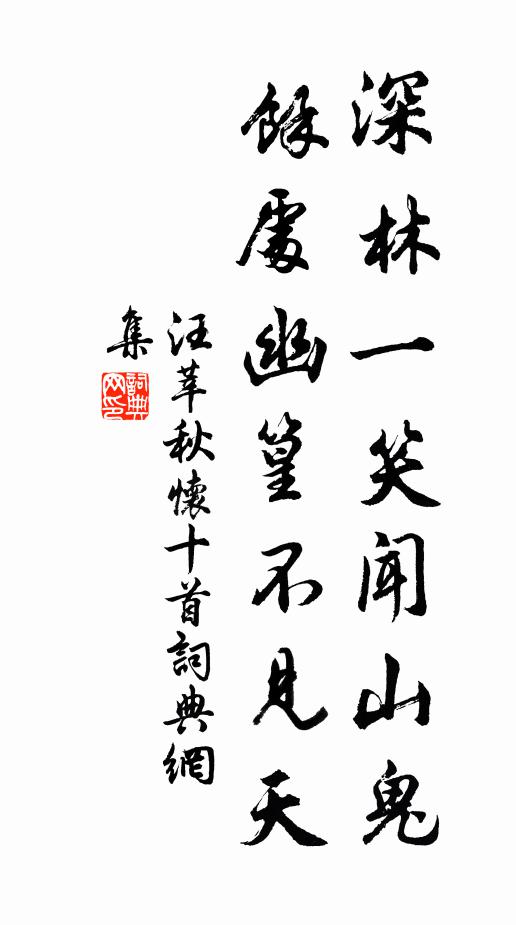 深林一笑闻山鬼
餘處幽篁不見天
汪莘秋懷十首詞典網
集
詞典
网印